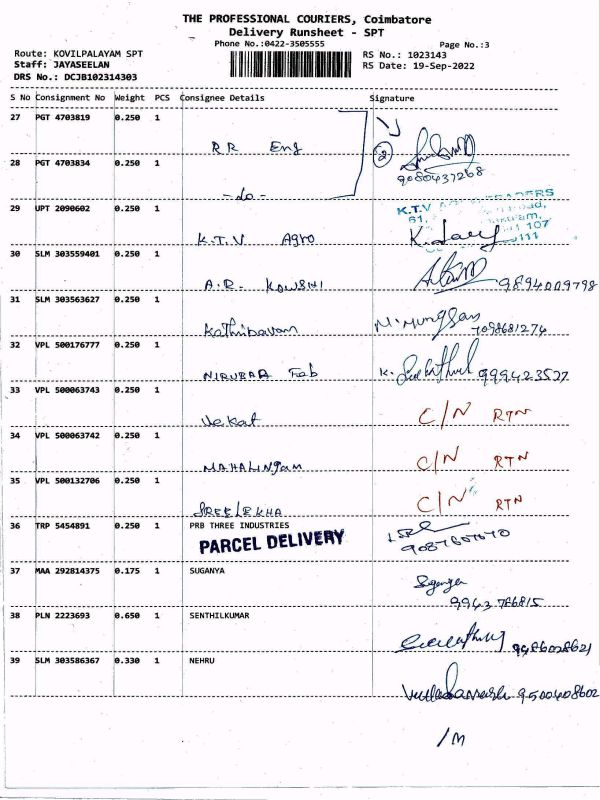 THE PROFESSIONAL COURIERS, Coimbatore
Delivery Runsheet - SPT
Phone No.:0422-3505555 Page No.:3
Route: KOVILPALAYAM SPT RS No.: 1023143
Staff: JAYASEELAN RS Date: 19-Sep-2022
DRS No.: DCJB102314303
S No Consignment No Weight PCS Consignee Details Signature
27 PGT 4703819 0.250 1
RR Eng
2
28 PGT 4703834 0.250 1
9080437268
- do -
29 UPT 2090602 0.250 1
K.T.V
K.T.V Agro
30 SLM 303559401 0.250 1
A.R. KOWSHI 9894009798
31 SLM 303563627 0.250 1
Kathiravan N. Murugesan 7098681274
32 VPL 500176777 0.250 1
NIRUBAA Fab K. 999423527
33 VPL 500063743 0.250 1
Vekat C/N RTN
34 VPL 500063742 0.250 1
MAHALINGAM C/N RTN
35 VPL 500132706 0.250 1
SREELEKHA C/N RTN
36 TRP 5454891 0.250 1 PRB THREE INDUSTRIES
PARCEL DELIVERY
37 MAA 292814375 0.175 1 SUGANYA
9943 786815
38 PLN 2223693 0.650 1 SENTHILKUMAR
9486028621
39 SLM 303586367 0.330 1 NEHRU
9500408602
/M